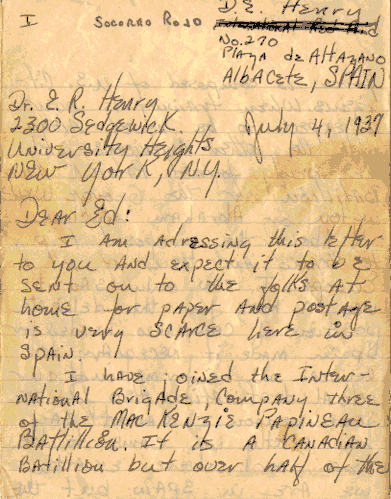 I SOCORRO ROJO
D. E. Henry
International Red Aid
No. 270
Plaza de Altazano
Albacete, SPAIN
Dr. E. R. Henry
2300 Sedgewick.
University Heights
New York, N.Y.
July 4, 1937
Dear Ed:
I am adressing this letter
to you and expect it to be
sent on to the folks at
home for paper and postage
is very scarce here in
Spain.
I have joined the Inter-
national Brigade Company three
of the MacKenzie Papineau
Batillion. It is a Canadian
Batillion but over half of the